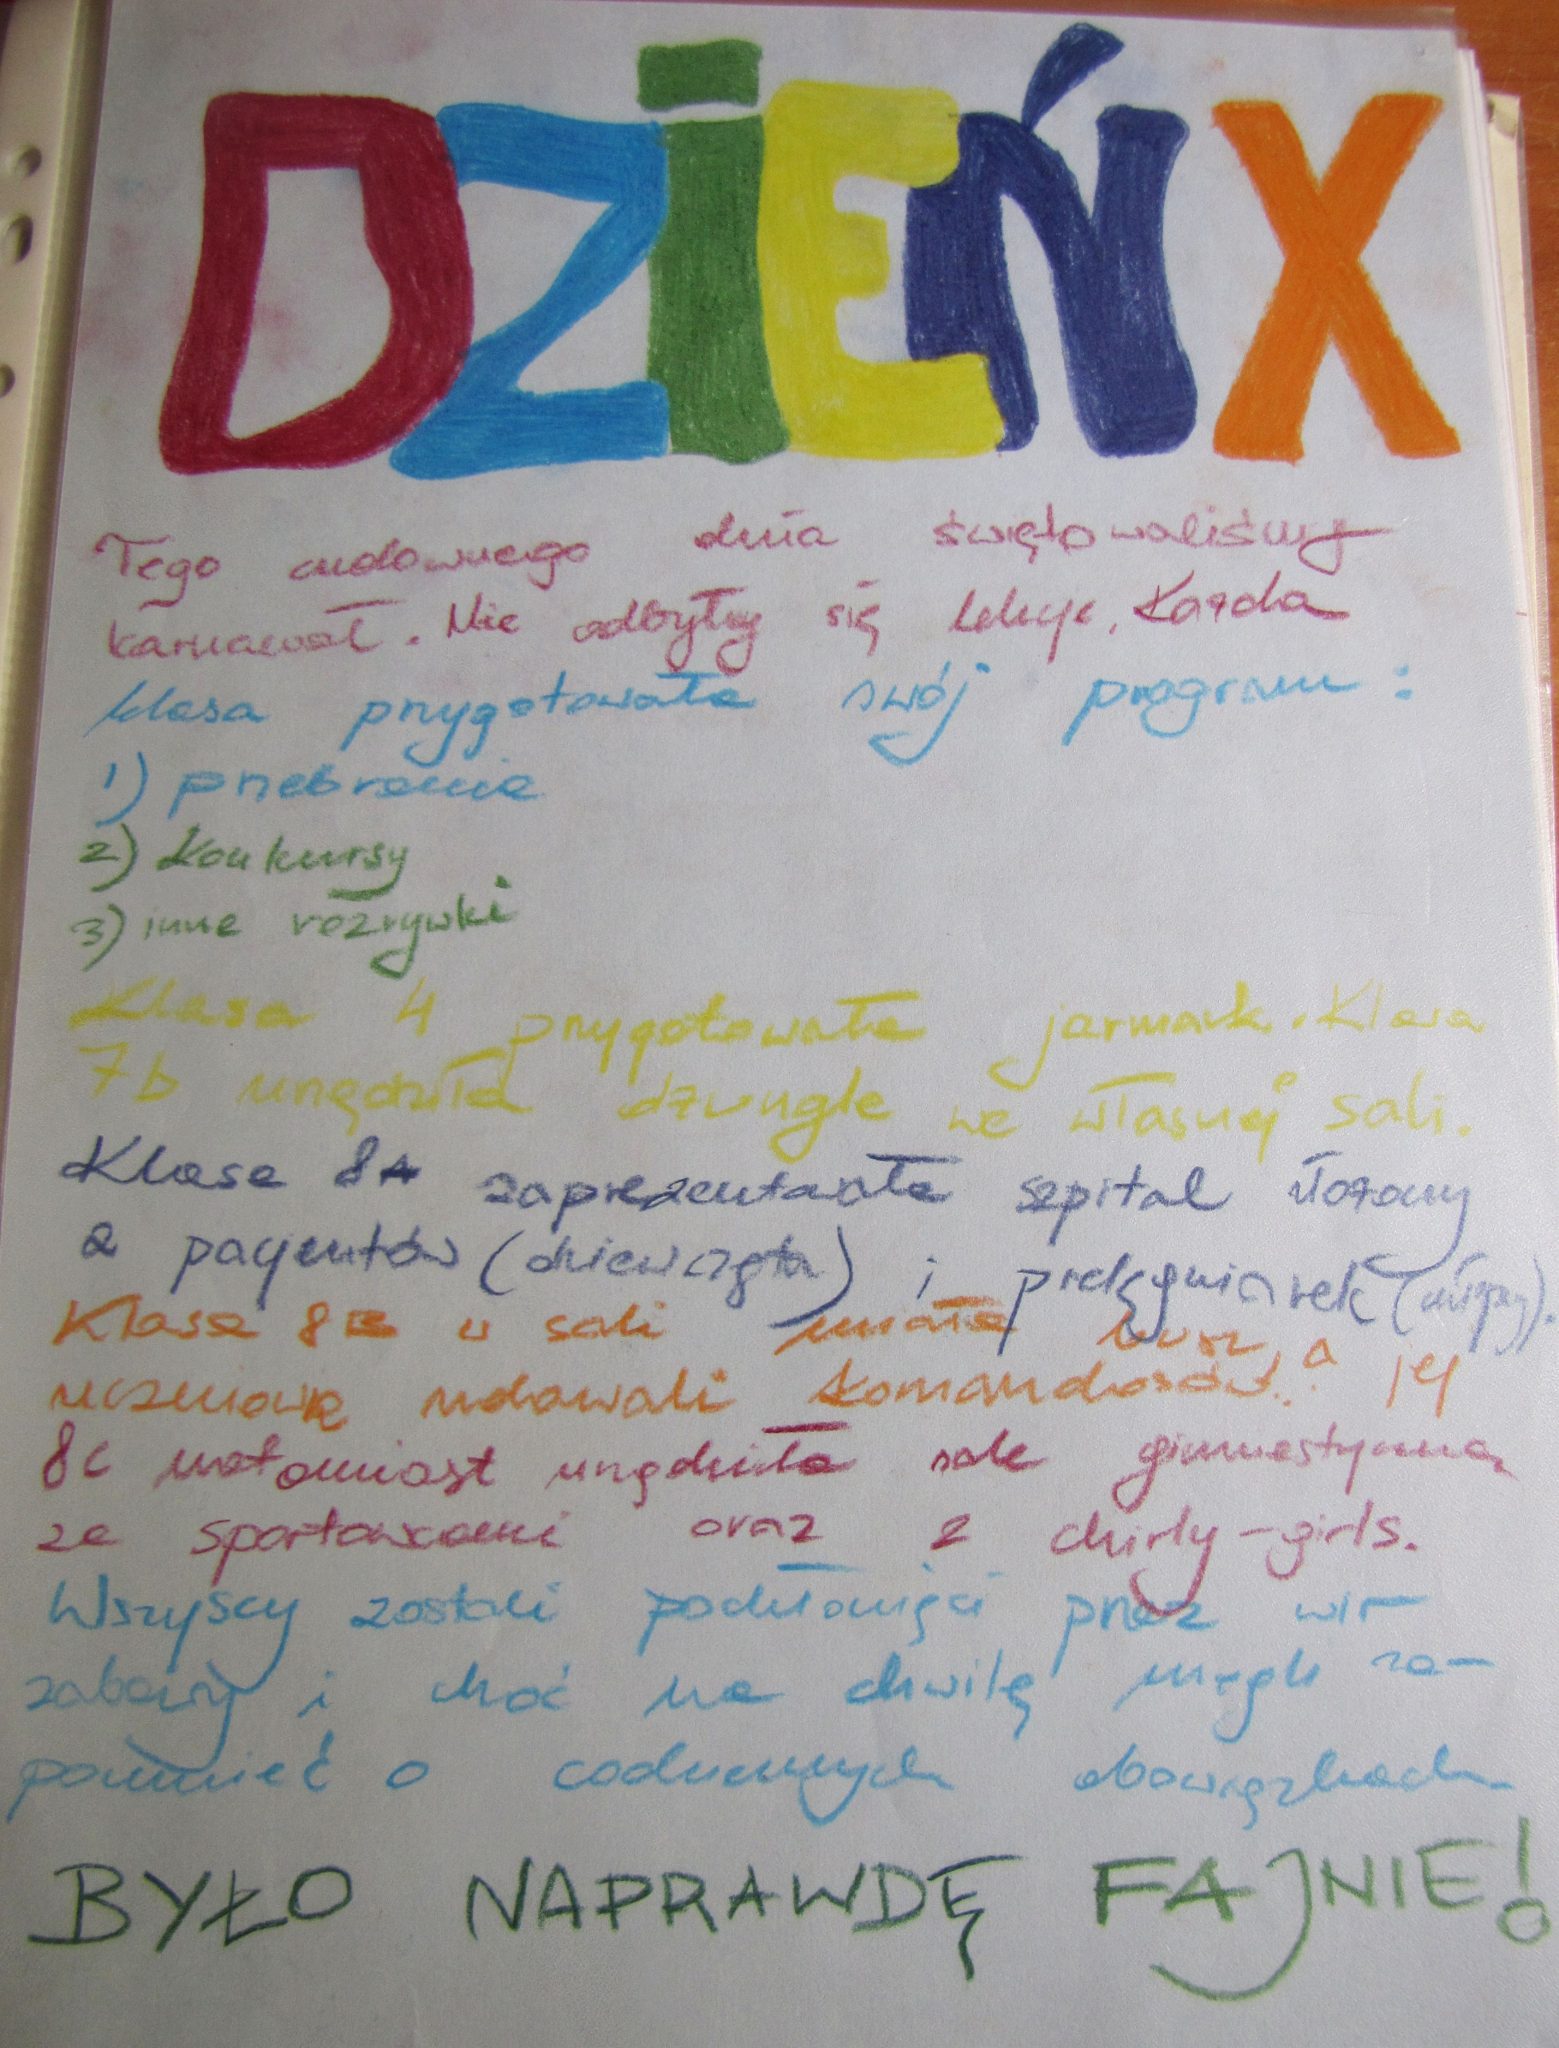 DZIEŃ X
Tego cudownego dnia świętowaliśmy
karnawał. Nie odbyły się lekcje, Każda
klasa przygotowała swój program:
1) przebranie
2) Konkursy
3) inne rozrywki
Klasa 4 przygotowała jarmark. Klasa
7b urządziła dżungle we własnej sali.
Klasa 8A zaprezentowała szpital złożony
z pacjentów (dziewczęta) i pielęgniarek (chłopcy).
Klasa 8B w sali miała busz, a jej
uczniowie udawali komandosów.
8c natomiast urządziła sale gimnastyczną
ze sportowcami oraz z chirly-girls.
Wszyscy zostali pochłonięci przez wir
zabawy i choć na chwilę mogli za-
pomnieć o codziennych obowiązkach
BYŁO NAPRAWDĘ FAJNIE!